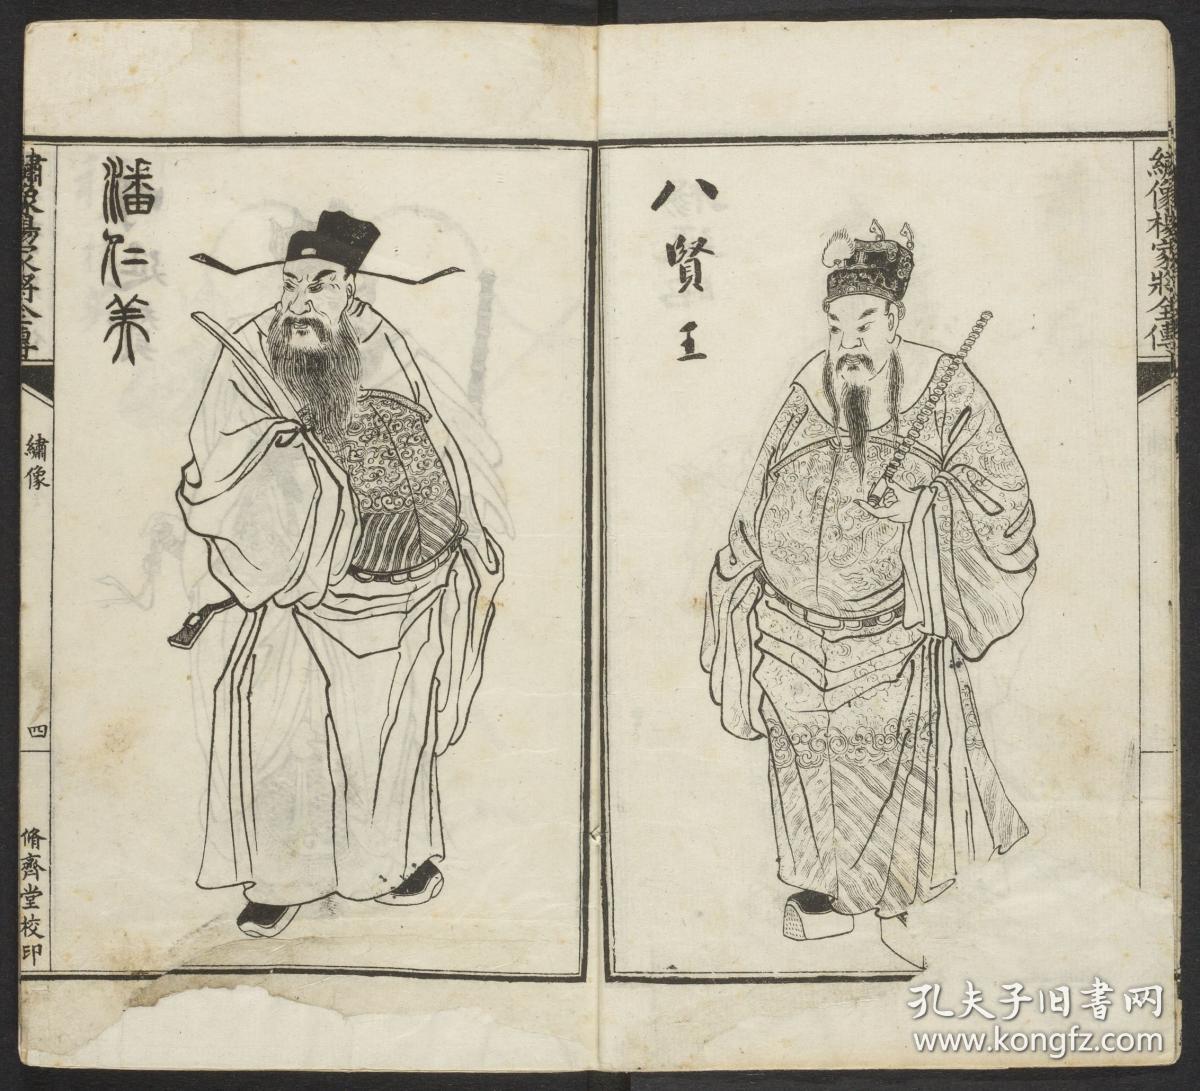 繡像楊家將全傳
八賢王
潘仁美
繡像楊家將全傳
繡像
四
脩齊堂校印
孔夫子旧書网
www.kongfz.com